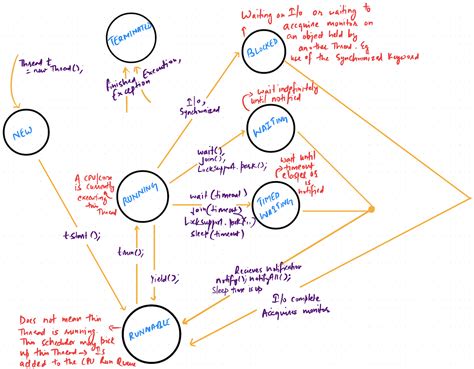 Waiting on I/o or waiting to
accquire monitor on
an object held by
another Thread. Eg
use of the Synchronized Keyword
TERMINATED
BLOCKED
Thread t
= new Thread();
Finished Execution,
Exception
I/o,
Synchronized
wait indefinitely
until notified
NEW
WAITING
wait();
join();
LockSupport.park();
A CPU/core
is currently
executing
this Thread
RUNNING
wait until
timeout
notified
wait (timeout)
join(timeout)
LockSupport.park(..)
sleep(timeout)
TIMED
WAITING
t.start();
t.run();
yield();
Recieves notification
notify(); notifyAll();
Sleep time is up
I/o complete
Accquires monitor
Does not mean this
Thread is running.
This scheduler may pick
up this Thread → Is
added to the CPU Run Queue
RUNNABLE